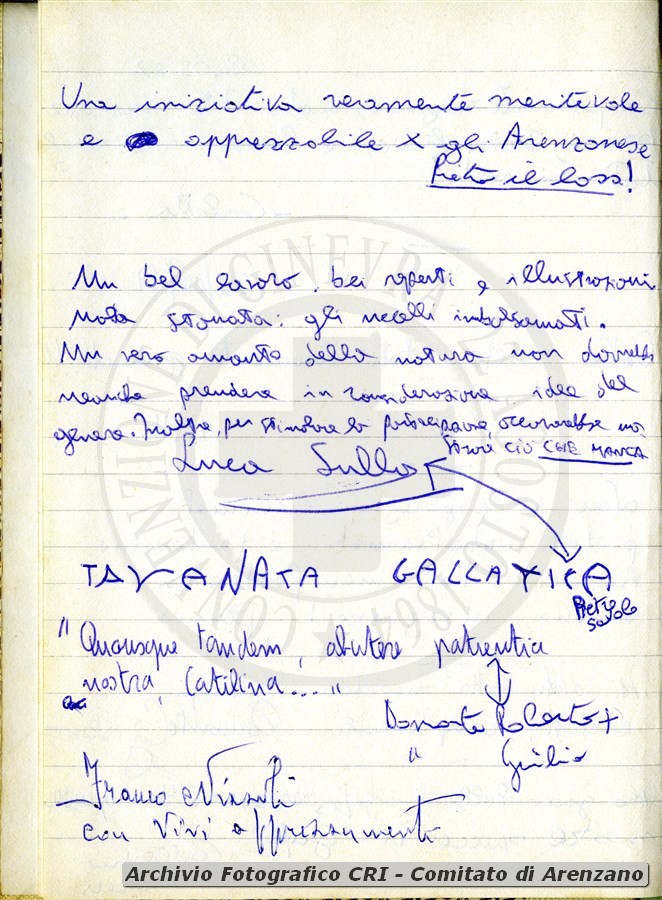 Una iniziativa veramente meritevole
e apprezzabile x gli Arenzanese
Pietro il boss!
Un bel lavoro, bei reperti e illustrazioni
Nota stonata: gli uccelli imbalsamati.
Un vero amante della natura non dovrebbe
neanche prendere in considerazione idee del
genere. Inoltre, per stimolare la partecipazione, occorrerebbe
ciò CHE MANCA
Luca Sullo
TAVANATA GALLATTICA
"Quousque tandem, abutere patientia
nostra, Catilina... "
Donato Roberto +
" Giulio
Franco
con vivi apprezzamenti
CONVENZIONE DI GINEVRA 22 AGOSTO 1864
Archivio Fotografico CRI - Comitato di Arenzano